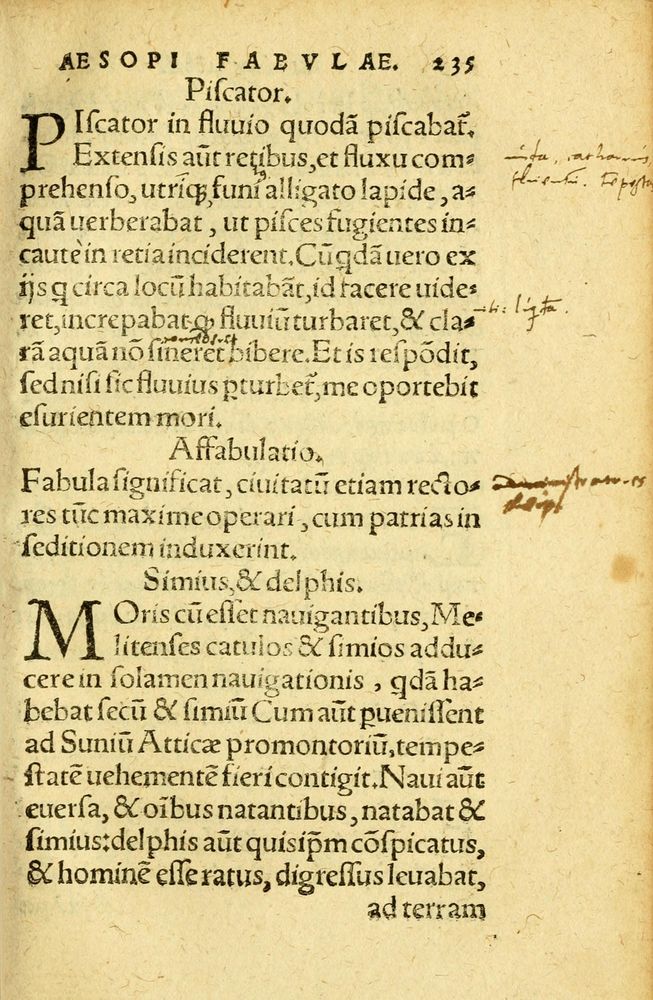 AESOPI FABVLAE. 235
Piſcator.
PIſcator in fluuio quodã piſcabat̃.
Extenſis aũt retibus, et fluxu com-
prehenſo, utriq̃, funi alligato lapide, a-
quã uerberabat, ut piſces fugientes in-
cautè in retia inciderent. Cũ q̃dã uero ex
ijs q̃ circa locũ habitabãt, id facere uide-
ret, increpabat q̃ fluuiũ turbaret, & cla-
rã aquã nõ ſineret bibere. Et is reſpõdit,
ſed niſi ſic fluuius ꝑturbet̃, me oportebit
eſurientem mori.
Affabulatio.
Fabula ſignificat, ciuitatũ etiam recto-
res tũc maxime operari, cum patrias in
ſeditionem induxerint.
Simius, & delphis.
MOris cũ eſſet nauigantibus, Me-
litenſes catulos & ſimios addu-
cere in ſolamen nauigationis, q̃dã ha-
bebat ſecũ & ſimiũ Cum aũt ꝑueniſſent
ad Suniũ Atticæ promontoriũ, tempe-
ſtatẽ uehementẽ fieri contigit. Naui aũt
euerſa, & oĩbus natantibus, natabat &
ſimius: delphis aũt quiſpĩam cõſpicatus,
& hominẽ eſſe ratus, digreſſus leuabat,
ad terram